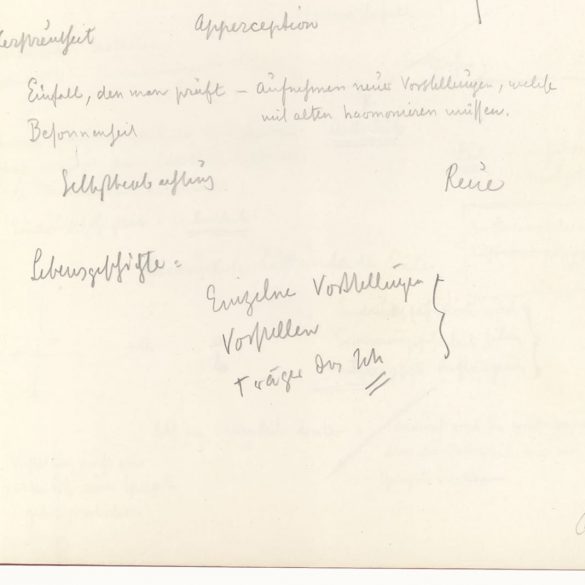 Zerstreutheit
Apperception
Einfall, den man prüft – Aufnehmen neuer Vorstellungen, welche
mit alten harmonieren müssen.
Besonnenheit
Selbstbeobachtung
Reue
Lebensgeschichte =
Einzelne Vorstellungen
Vorstellen
Träger des Ich